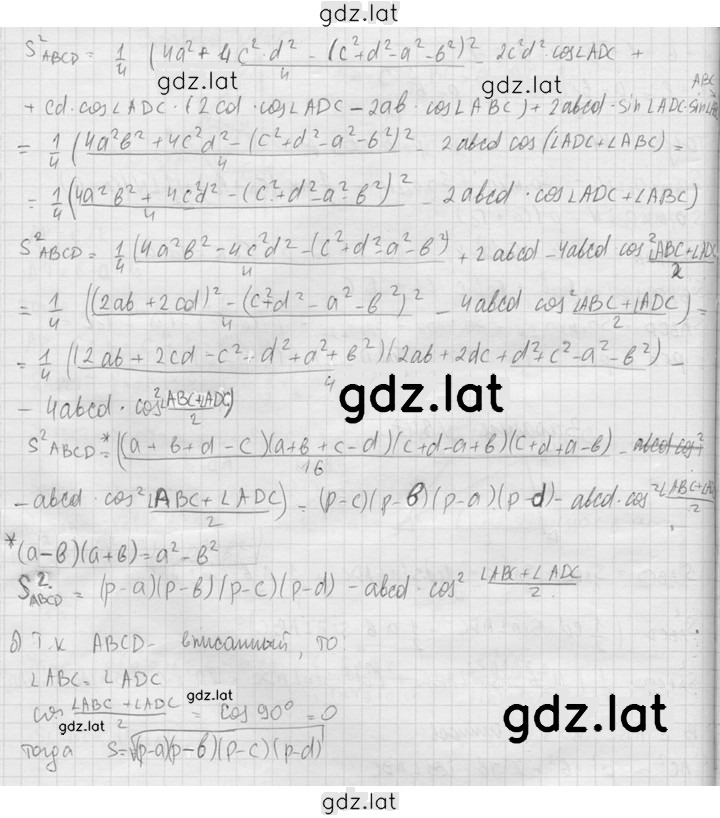 gdz.lat
S²ABCD = 1/4 (4a² + 4c²·d² - (c²+d²-a²-b²)²/4 - 2c²d²·cos∠ADC +
gdz.lat
+ cd·cos∠ADC·(2cd·cos∠ADC - 2ab·cos∠ABC) + 2abcd·sin∠ADC·sin∠ABC
= 1/4 (4a²b² + 4c²d² - (c²+d²-a²-b²)²/4 - 2abcd cos(∠ADC+∠ABC) =
= 1/4 (4a²b² + 4c²d² - (c²+d²-a²-b²)²/4 - 2abcd·cos∠ADC+∠ABC)
S²ABCD = 1/4 (4a²b² - 4c²d² - (c²+d²-a²-b²)/4 + 2abcd - 4abcd cos² ∠ABC+∠ADC/2
gdz.lat gdz.lat
= 1/4 ((2ab+2cd)² - (c²+d²-a²-b²)²/4 - 4abcd cos² ∠ABC+∠ADC/2) =
= 1/4 ((2ab+2cd-c²+d²+a²+b²)(2ab+2dc+d²+c²-a²-b²)/4 -
gdz.lat
- 4abcd·cos² ∠ABC+∠ADC/2)
S²ABCD =* ((a+b+d-c)(a+b+c-d)(c+d-a+b)(c+d+a-b)/16 - abcd cos²
- abcd·cos² ∠ABC+∠ADC/2) = (p-c)(p-b)(p-a)(p-d) - abcd·cos² ∠ABC+∠A/2
*(a-b)(a+b) = a²-b²
S²ABCD = (p-a)(p-b)(p-c)(p-d) - abcd·cos² ∠ABC+∠ADC/2.
б) Т.к ABCD - вписанный, то:
∠ABC = ∠ADC
gdz.lat
cos ∠ABC+∠ADC/2 = cos 90° = 0
gdz.lat
gdz.lat
тогда S=√(p-a)(p-b)(p-c)(p-d)
gdz.lat